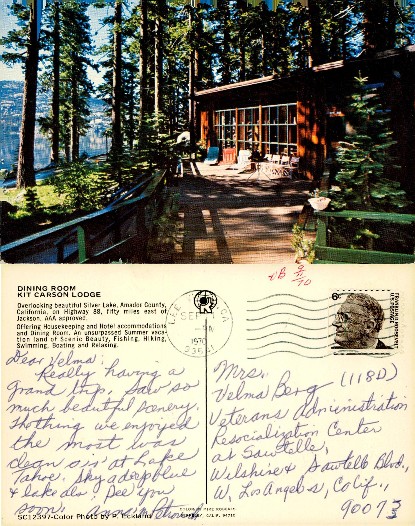 DINING ROOM
KIT CARSON LODGE
Overlooking beautiful Silver Lake, Amador County,
California, on Highway 88, fifty miles east of
Jackson. AAA approved.
Offering Housekeeping and Hotel accommodations
and Dining Room. An unsurpassed Summer vaca-
tion land of Scenic Beauty, Fishing, Hiking,
Swimming, Boating and Relaxing.
Dear Velma:
Really having a
grand trip. Saw so
much beautiful scenery.
Nothing we enjoyed
the most was
at Lake
Tahoe. Sky a deep blue
& lake also. See you
soon.
SC12397-Color Photo by
LEE
SEP
1970
6¢
FRANKLIN D. ROOSEVELT
U.S. POSTAGE
Mrs.
Velma Berg (118D)
Veterans Administration
Resocialization Center
at Sawtelle,
Wilshire & Sawtelle Blvd.
W. Los Angeles, Calif.,
90073